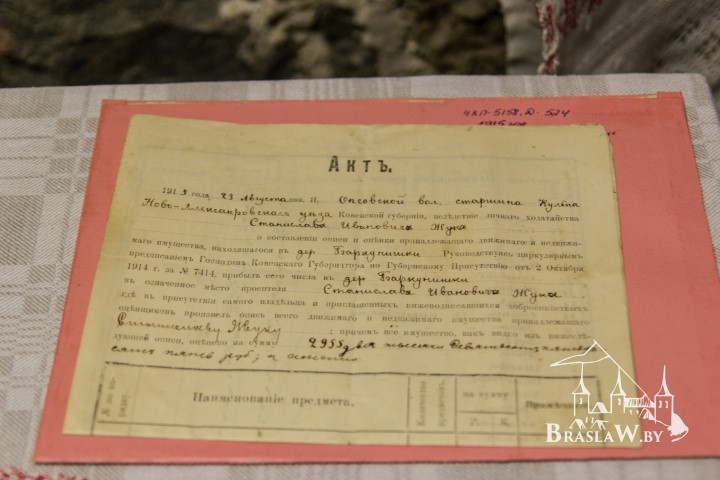 ЧКП-5158, Д-524
1915 год
Актъ.
1915 года, 23 Августа дня. Я, Опсовской вол. старшина Кульпа
Ново-Александровскаго уѣзда Ковенской губерніи, вслѣдствіе личнаго ходатайства
Станислава Ивановича Жука
о составленіи описи и оцѣнки принадлежащаго движимаго и недвижи-
маго имущества, находящагося въ дер Баркунишки Руководствуясь циркулярнымъ
предписаніемъ Господина Ковенскаго Губернатора по Губернскому Присутствію отъ 2 Октября
1914 г. за № 7414, прибылъ сего числа въ дер Баркунишки
въ означенное мѣсто просителя Станислава Ивановича Жука
гдѣ въ присутствіи самого владѣльца и приглашенныхъ нижеподписавшихся добросовѣстныхъ
оцѣнщиковъ произвелъ опись всего движимаго и недвижимаго имущества принадлежащаго
Станиславу Жуку ; причемъ все имущество, какъ видно изъ нижеслѣ-
дующей описи, оцѣнено на сумму 2955 два тысячи девятьсотъ пятьде
сятъ пять руб;
№ по по-
рядку.
Наименованіе предмета.
Количество
предметовъ.
на сумму
Р. К.
Примѣч
BRASLAW.BY